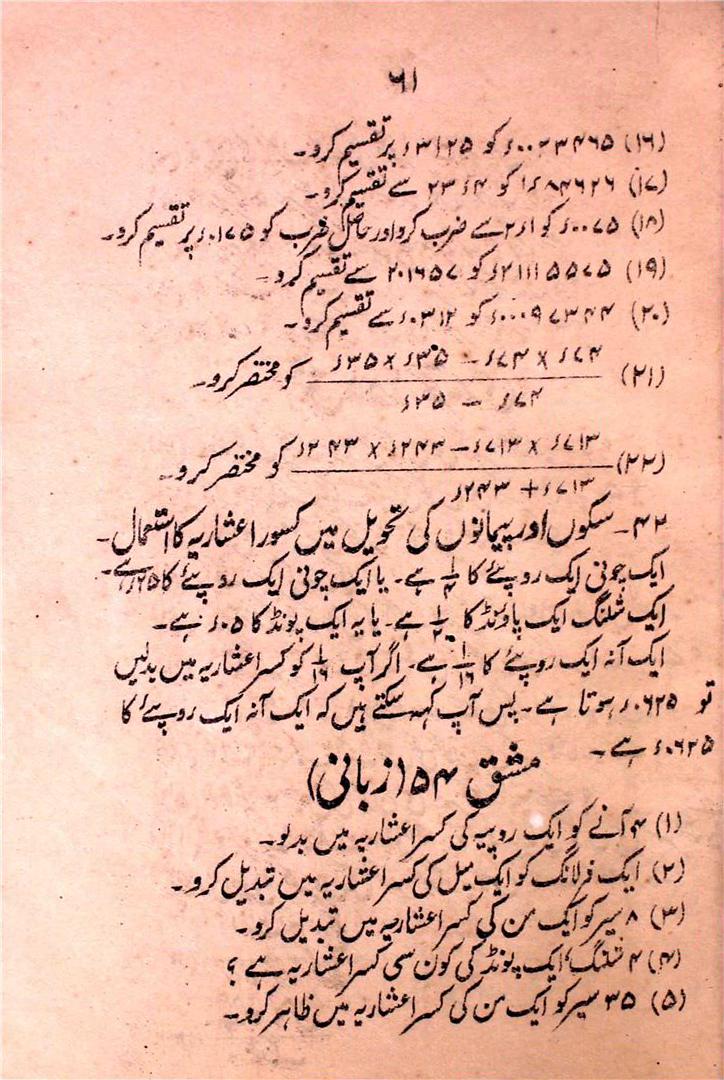 ۶۱
(۱۶) ۰۰۲۳۴۶۵ء کو ۳۱۲۵ء پر تقسیم کرو۔
(۱۷) ۱ء۸۴۶۲۶ کو ۲۳ء۴ سے تقسیم کرو۔
(۱۸) ۰۰۷۵ء کو ۲ء۱ سے ضرب کرو اور حاصل ضرب کو ۰۱۷۵ء پر تقسیم کرو۔
(۱۹) ۲۱۱۱۵۵۷۵ء کو ۲۰۱۶۵۷ سے تقسیم کرو۔
(۲۰) ۰۰۰۹۷۳۴۴ء کو ۰۳۱۲ء سے تقسیم کرو۔
(۲۱) (۷۴ء × ۷۴ء − ۳۵ء × ۳۵ء) / (۷۴ء − ۳۵ء) کو مختصر کرو۔
(۲۲) (۷۱۳ء × ۷۱۳ء − ۲۴۳ء × ۲۴۳ء) / (۷۱۳ء + ۲۴۳ء) کو مختصر کرو۔
۴۲۔ سکوں اور پیمانوں کی تحویل میں کسور اعشاریہ کا استعمال۔
ایک چونی ایک روپئے کا ۱/۴ ہے۔ یا ایک چونی ایک روپئے کا ۲۵ء ہے۔
ایک شلنگ ایک پاونڈ کا ۱/۲۰ ہے۔ یا یہ ایک پونڈ کا ۰۵ء ہے۔
ایک آنہ ایک روپئے کا ۱/۱۶ ہے۔ اگر آپ ۱/۱۶ کو کسر اعشاریہ میں بدلیں
تو ۰۶۲۵ء ہوتا ہے۔ پس آپ کہہ سکتے ہیں کہ ایک آنہ ایک روپئے کا
۰۶۲۵ء ہے۔
مشق ۵۴ (زبانی)
(۱) ۴ آنے کو ایک روپیہ کی کسر اعشاریہ میں بدلو۔
(۲) ایک فرلانگ کو ایک میل کی کسر اعشاریہ میں تبدیل کرو۔
(۳) ۸ سیر کو ایک من کی کسر اعشاریہ میں تبدیل کرو۔
(۴) ۴ شلنگ، ایک پونڈ کی کون سی کسر اعشاریہ ہے ؟
(۵) ۳۵ سیر کو ایک من کی کسر اعشاریہ میں ظاہر کرو۔